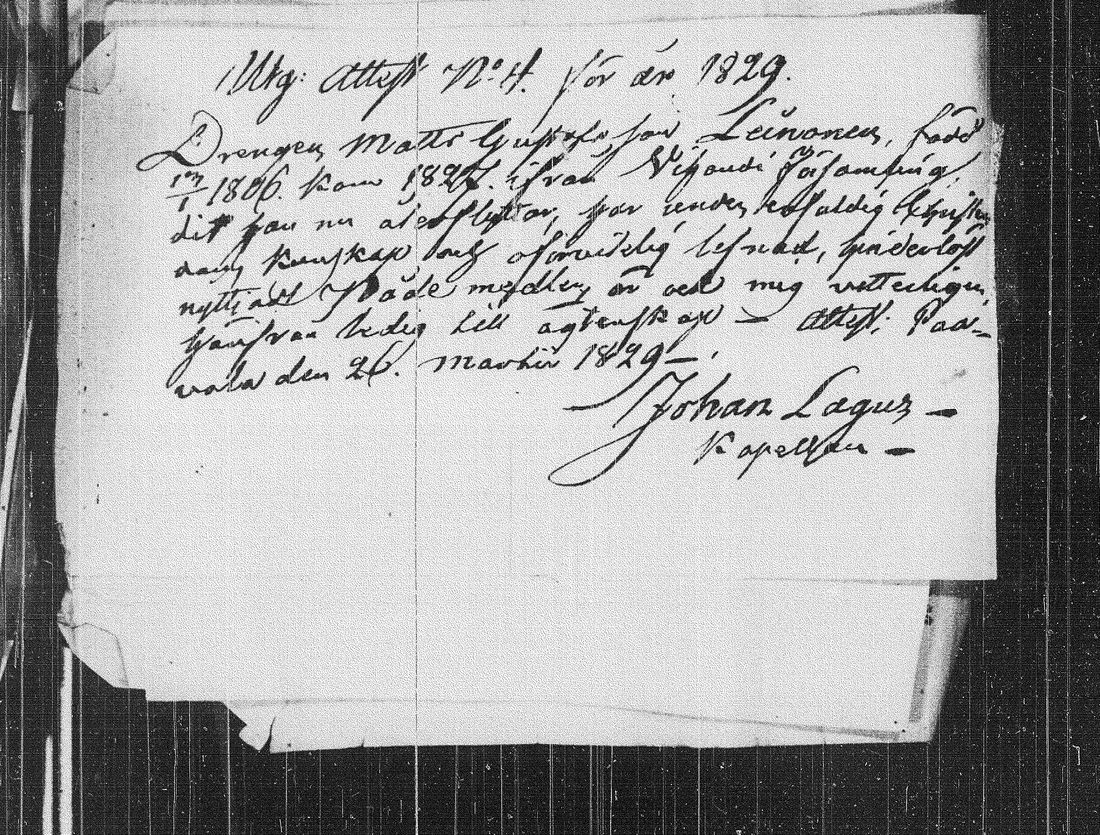 Utg: Attest N:o 4. för år 1829.
Drengen Matts Gustafsson Leinonen, född
17/1 1806. kom 1827. ifrån Vihandi Församling,
dit han nu återflyttar, har enders enfaldig Christen-
doms kunskap och oförvitelig lefnad, hinderlöst
nyttjat Nåde medlen är ock mig vetterligen
härifrån ledig till ägtenskap — Attest; Paa-
vola den 26. Martii 1829 —
Johan Lagus —
Kapellan —